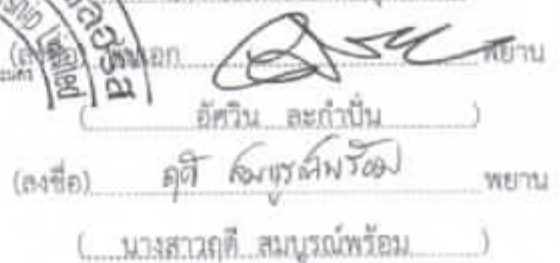 (ลงชื่อ) พันเอก พยาน
( อัศวิน ละกำปั่น )
(ลงชื่อ) ฤดี สมบูรณ์พร้อม พยาน
( นางสาวฤดี สมบูรณ์พร้อม )